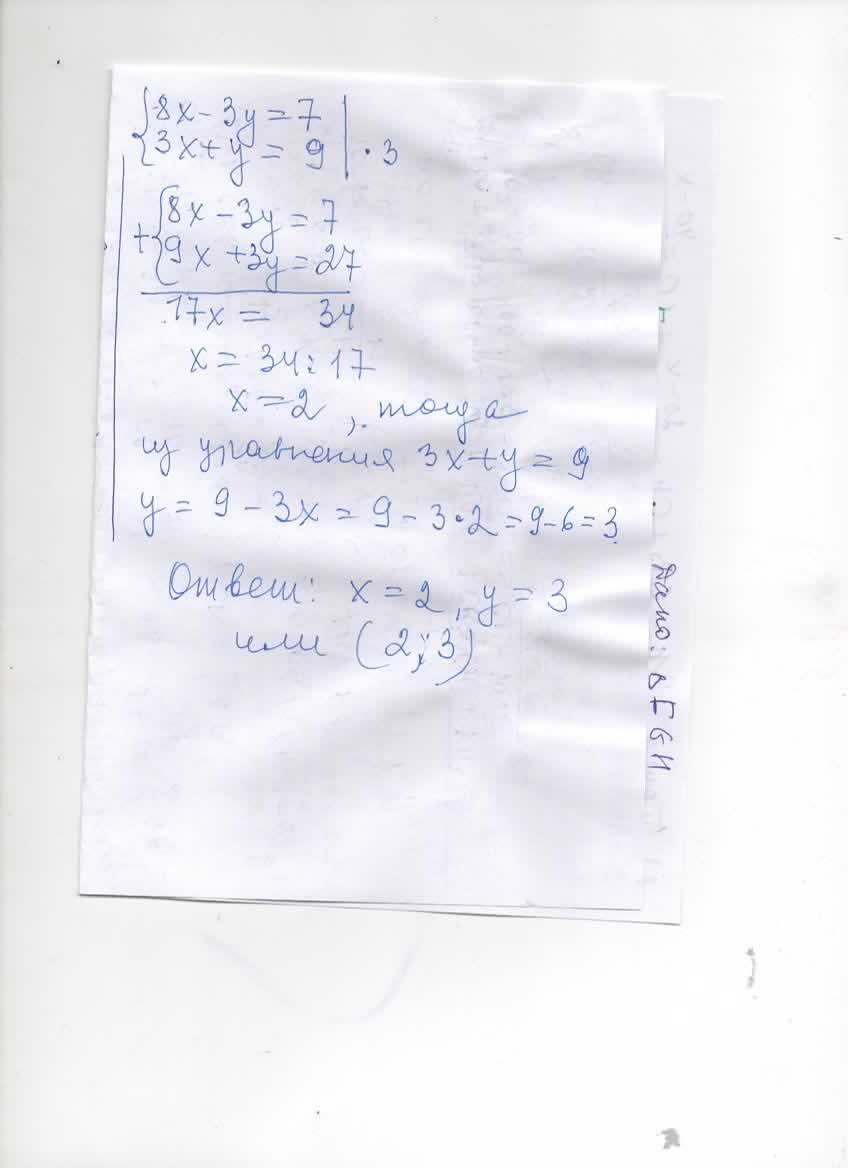 {8x - 3y = 7
{3x + y = 9 | · 3
+{8x - 3y = 7
{9x + 3y = 27
17x = 34
x = 34 : 17
x = 2, тогда
из уравнения 3x + y = 9
y = 9 - 3x = 9 - 3 · 2 = 9 - 6 = 3
Ответ: x = 2, y = 3
или (2; 3)
Дано: △FGH